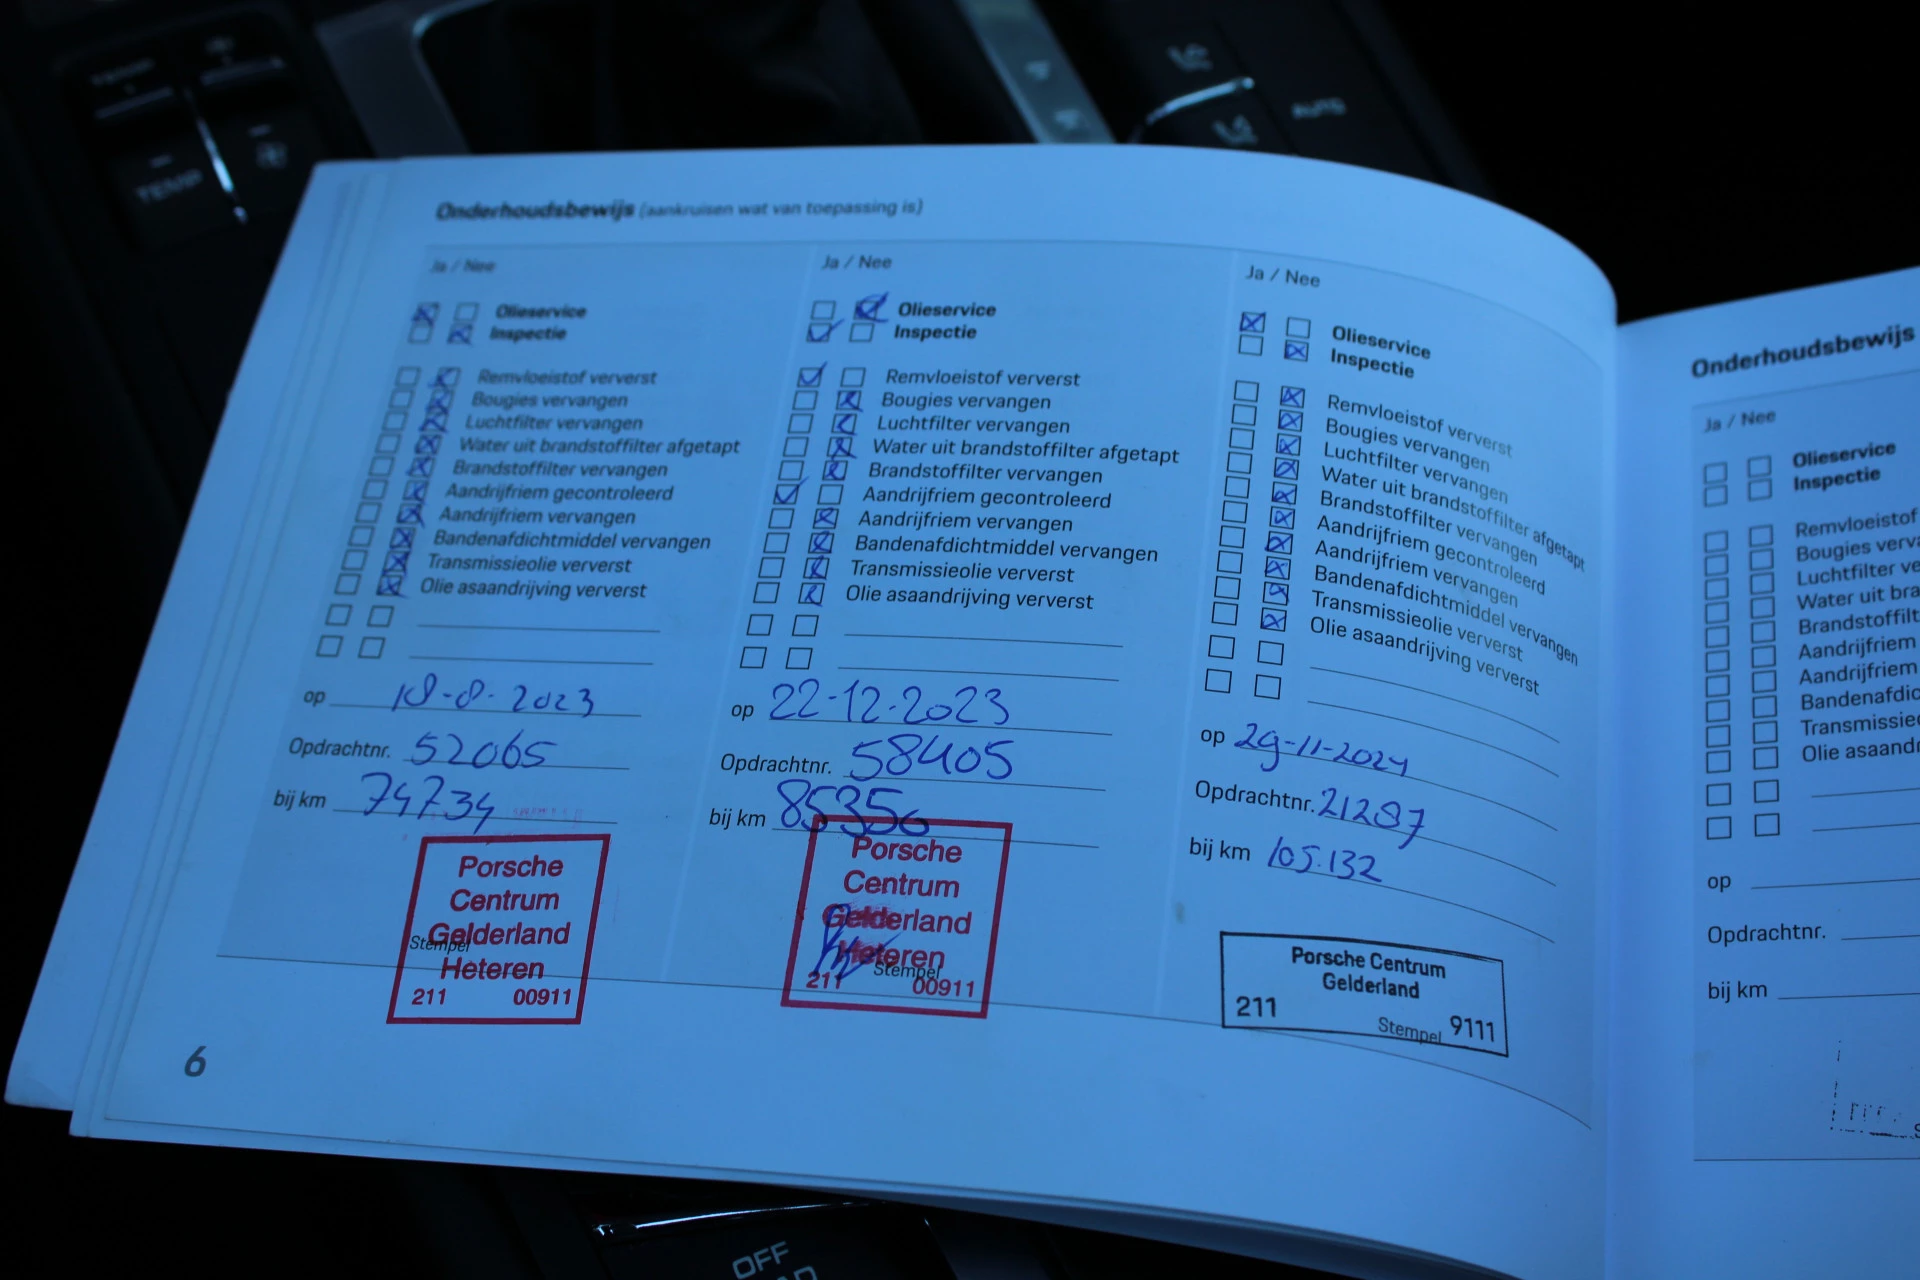 TEMP
AUTO
Onderhoudsbewijs (aankruisen wat van toepassing is)
Ja / Nee
Olieservice
Inspectie
Remvloeistof ververst
Bougies vervangen
Luchtfilter vervangen
Water uit brandstoffilter afgetapt
Brandstoffilter vervangen
Aandrijfriem gecontroleerd
Aandrijfriem vervangen
Bandenafdichtmiddel vervangen
Transmissieolie ververst
Olie asaandrijving ververst
op 18-8-2023
Opdrachtnr. 52065
bij km 74734
Porsche
Centrum
Gelderland
Stempel
Heteren
211 00911
Ja / Nee
Olieservice
Inspectie
Remvloeistof ververst
Bougies vervangen
Luchtfilter vervangen
Water uit brandstoffilter afgetapt
Brandstoffilter vervangen
Aandrijfriem gecontroleerd
Aandrijfriem vervangen
Bandenafdichtmiddel vervangen
Transmissieolie ververst
Olie asaandrijving ververst
op 22-12-2023
Opdrachtnr. 58405
bij km 85350
Porsche
Centrum
Gelderland
Heteren
Stempel
211 00911
Ja / Nee
Olieservice
Inspectie
Remvloeistof ververst
Bougies vervangen
Luchtfilter vervangen
Water uit brandstoffilter afgetapt
Brandstoffilter vervangen
Aandrijfriem gecontroleerd
Aandrijfriem vervangen
Bandenafdichtmiddel vervangen
Transmissieolie ververst
Olie asaandrijving ververst
op 29-11-2024
Opdrachtnr. 21287
bij km 105.132
Porsche Centrum
Gelderland
211 Stempel 9111
6
Onderhoudsbewijs
Ja / Nee
Olieservice
Inspectie
Remvloeistof
Bougies verva
Luchtfilter ve
Water uit bra
Brandstoffilt
Aandrijfriem
Aandrijfriem
Bandenafdic
Transmissie
Olie asaandr
op
Opdrachtnr.
bij km
OFF